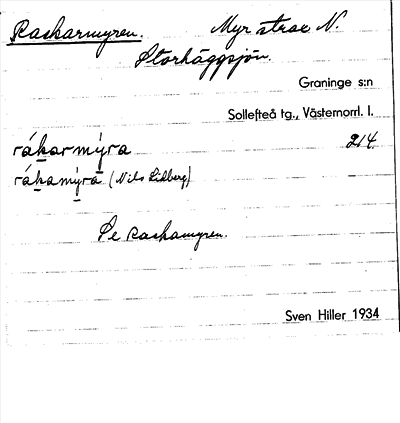 Raskarmyren. Myr strax N.
Storhäggsjön.
Graninge s:n
Sollefteå tg., Västernorrl. l.
rákarmýra 214.
rákamýra (Nils Lidberg) —
Se Raskamyren.
Sven Hiller 1934